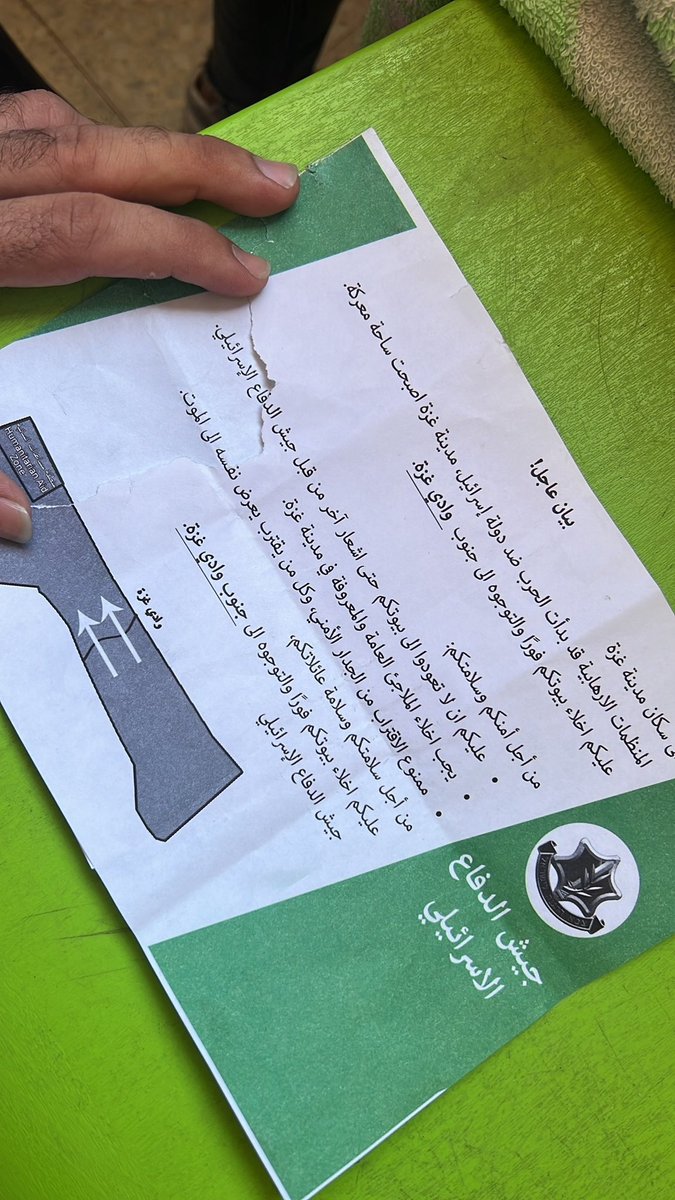 جيش الدفاع
الاسرائيلي
بيان عاجل!
ى سكان مدينة غزة
المنظمات الارهابية قد بدأت الحرب ضد دولة إسرائيل، مدينة غزة اصبحت ساحة معركة.
عليكم اخلاء بيوتكم فورًا والتوجوه الى جنوب وادي غزة.
من أجل أمنكم وسلامتكم:
• عليكم ان لا تعودوا الى بيوتكم حتى اشعار آخر من قبل جيش الدفاع الإسرائيلي.
• يجب اخلاء الملاجئ العامة والمعروفة في مدينة غزة.
• ممنوع الاقتراب من الجدار الأمني، وكل من يقترب يعرض نفسه الى الموت.
من أجل سلامتكم وسلامة عائلاتكم،
عليكم اخلاء بيوتكم فورًا والتوجوه الى جنوب وادي غزة.
جيش الدفاع الإسرائيلي
وادي غزة
Humanitarian Aid
Zone